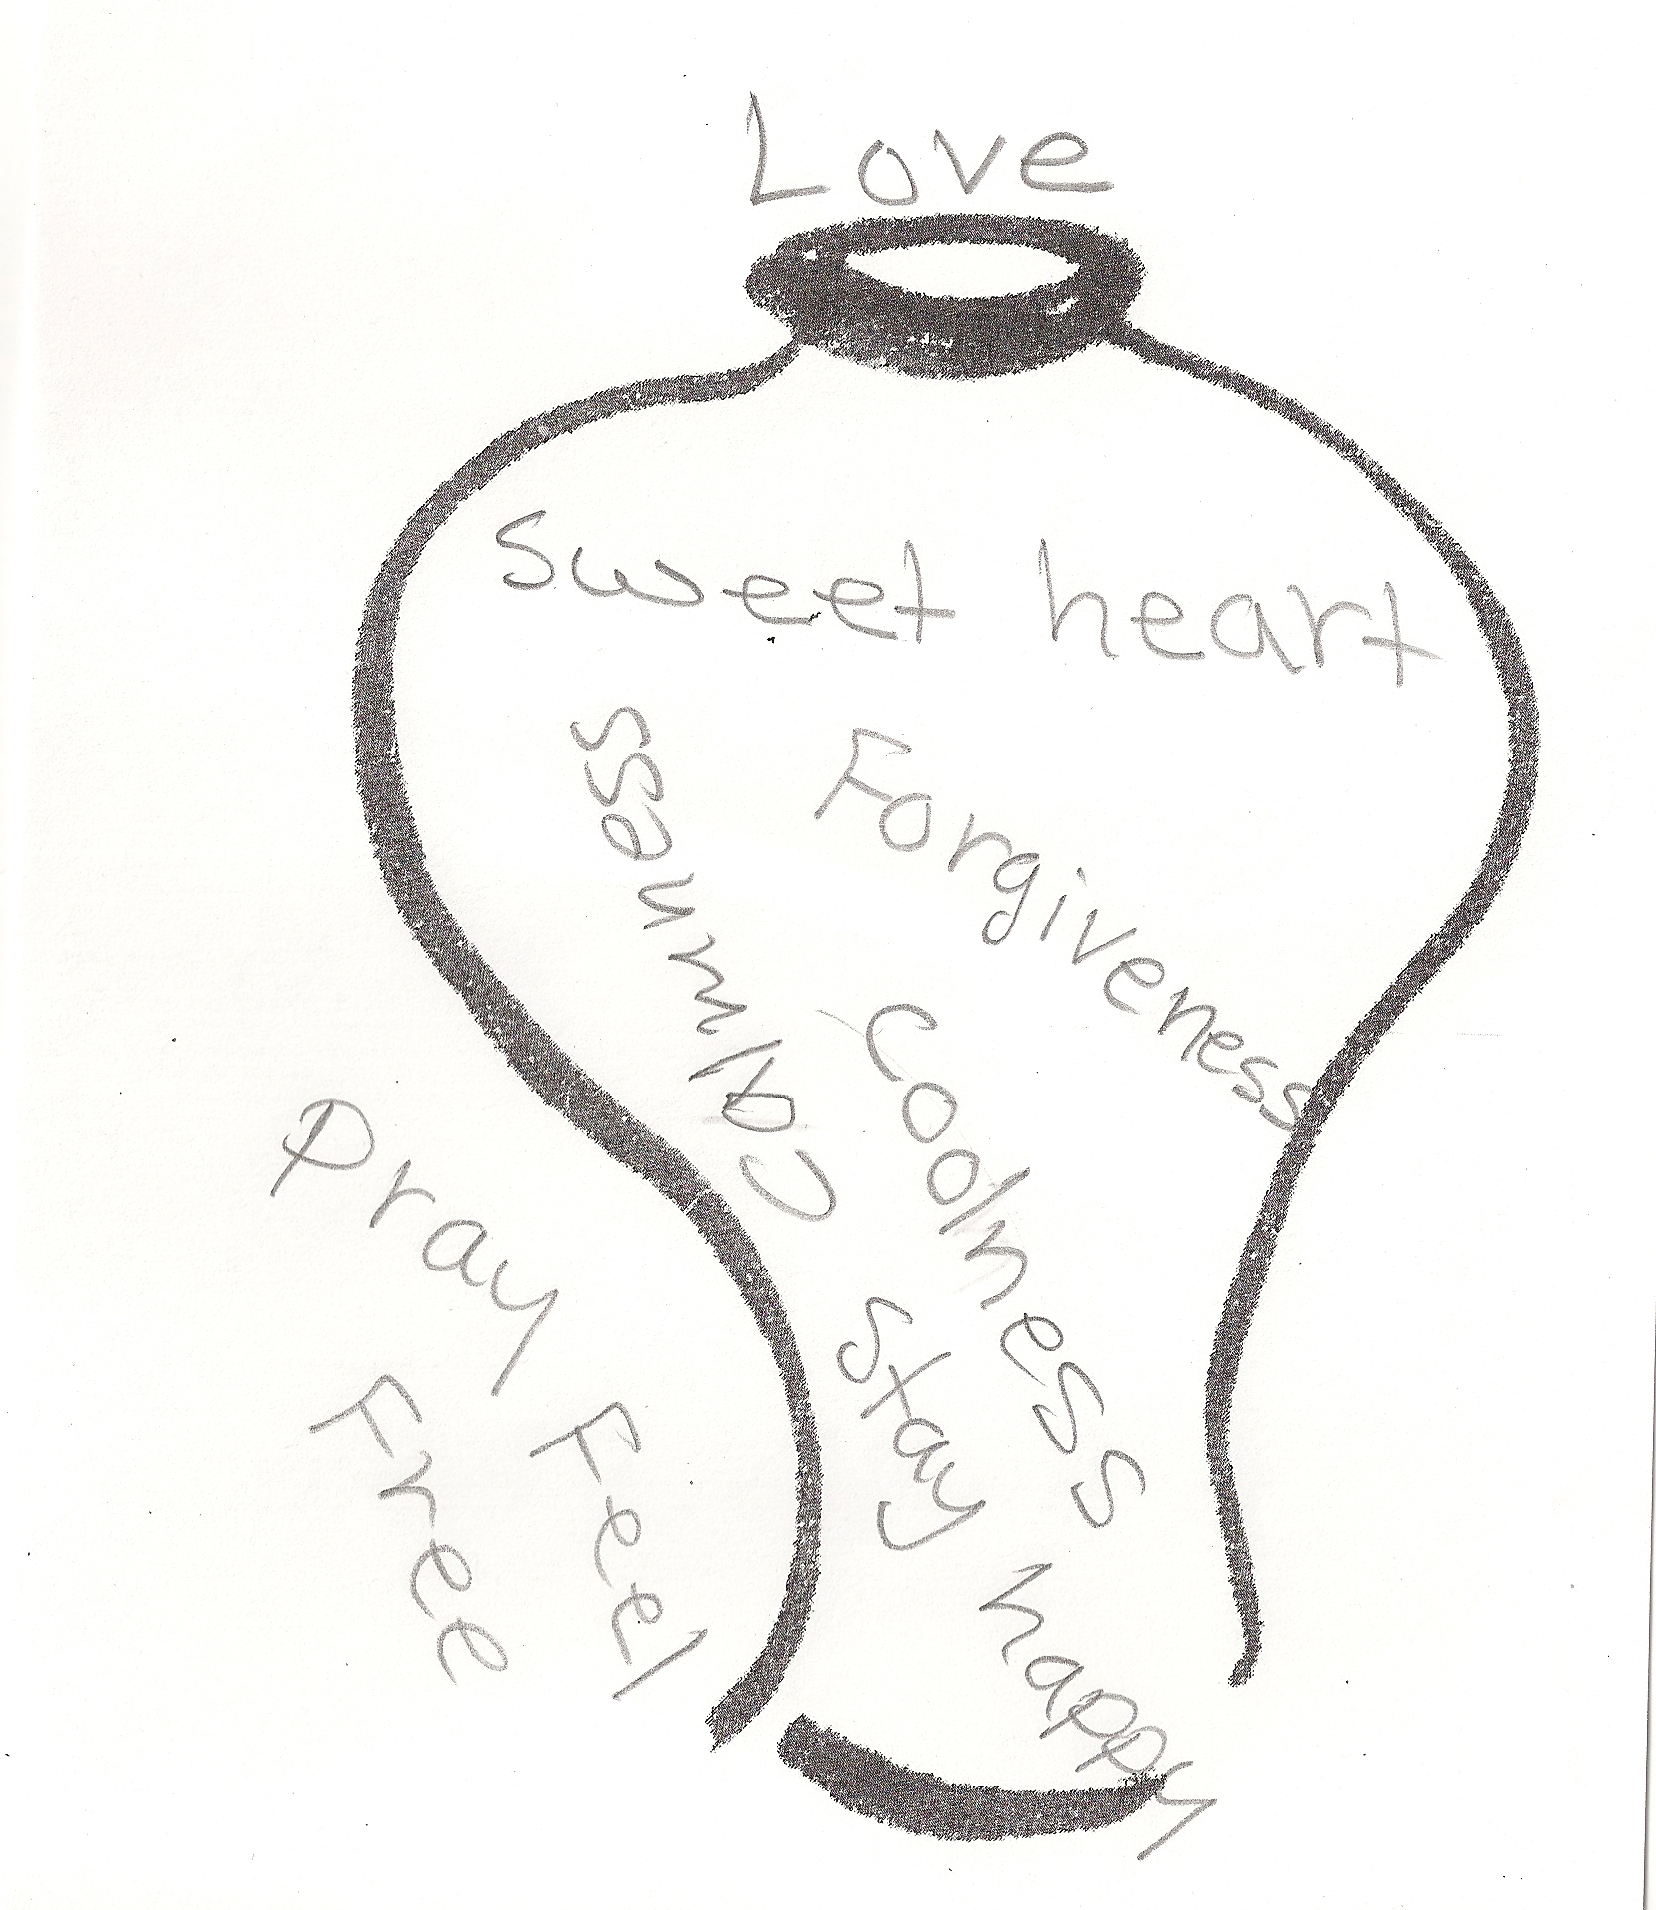 Love
sweet heart
Forgiveness
calmness
coolness
stay happy
Pray
Feel
Free